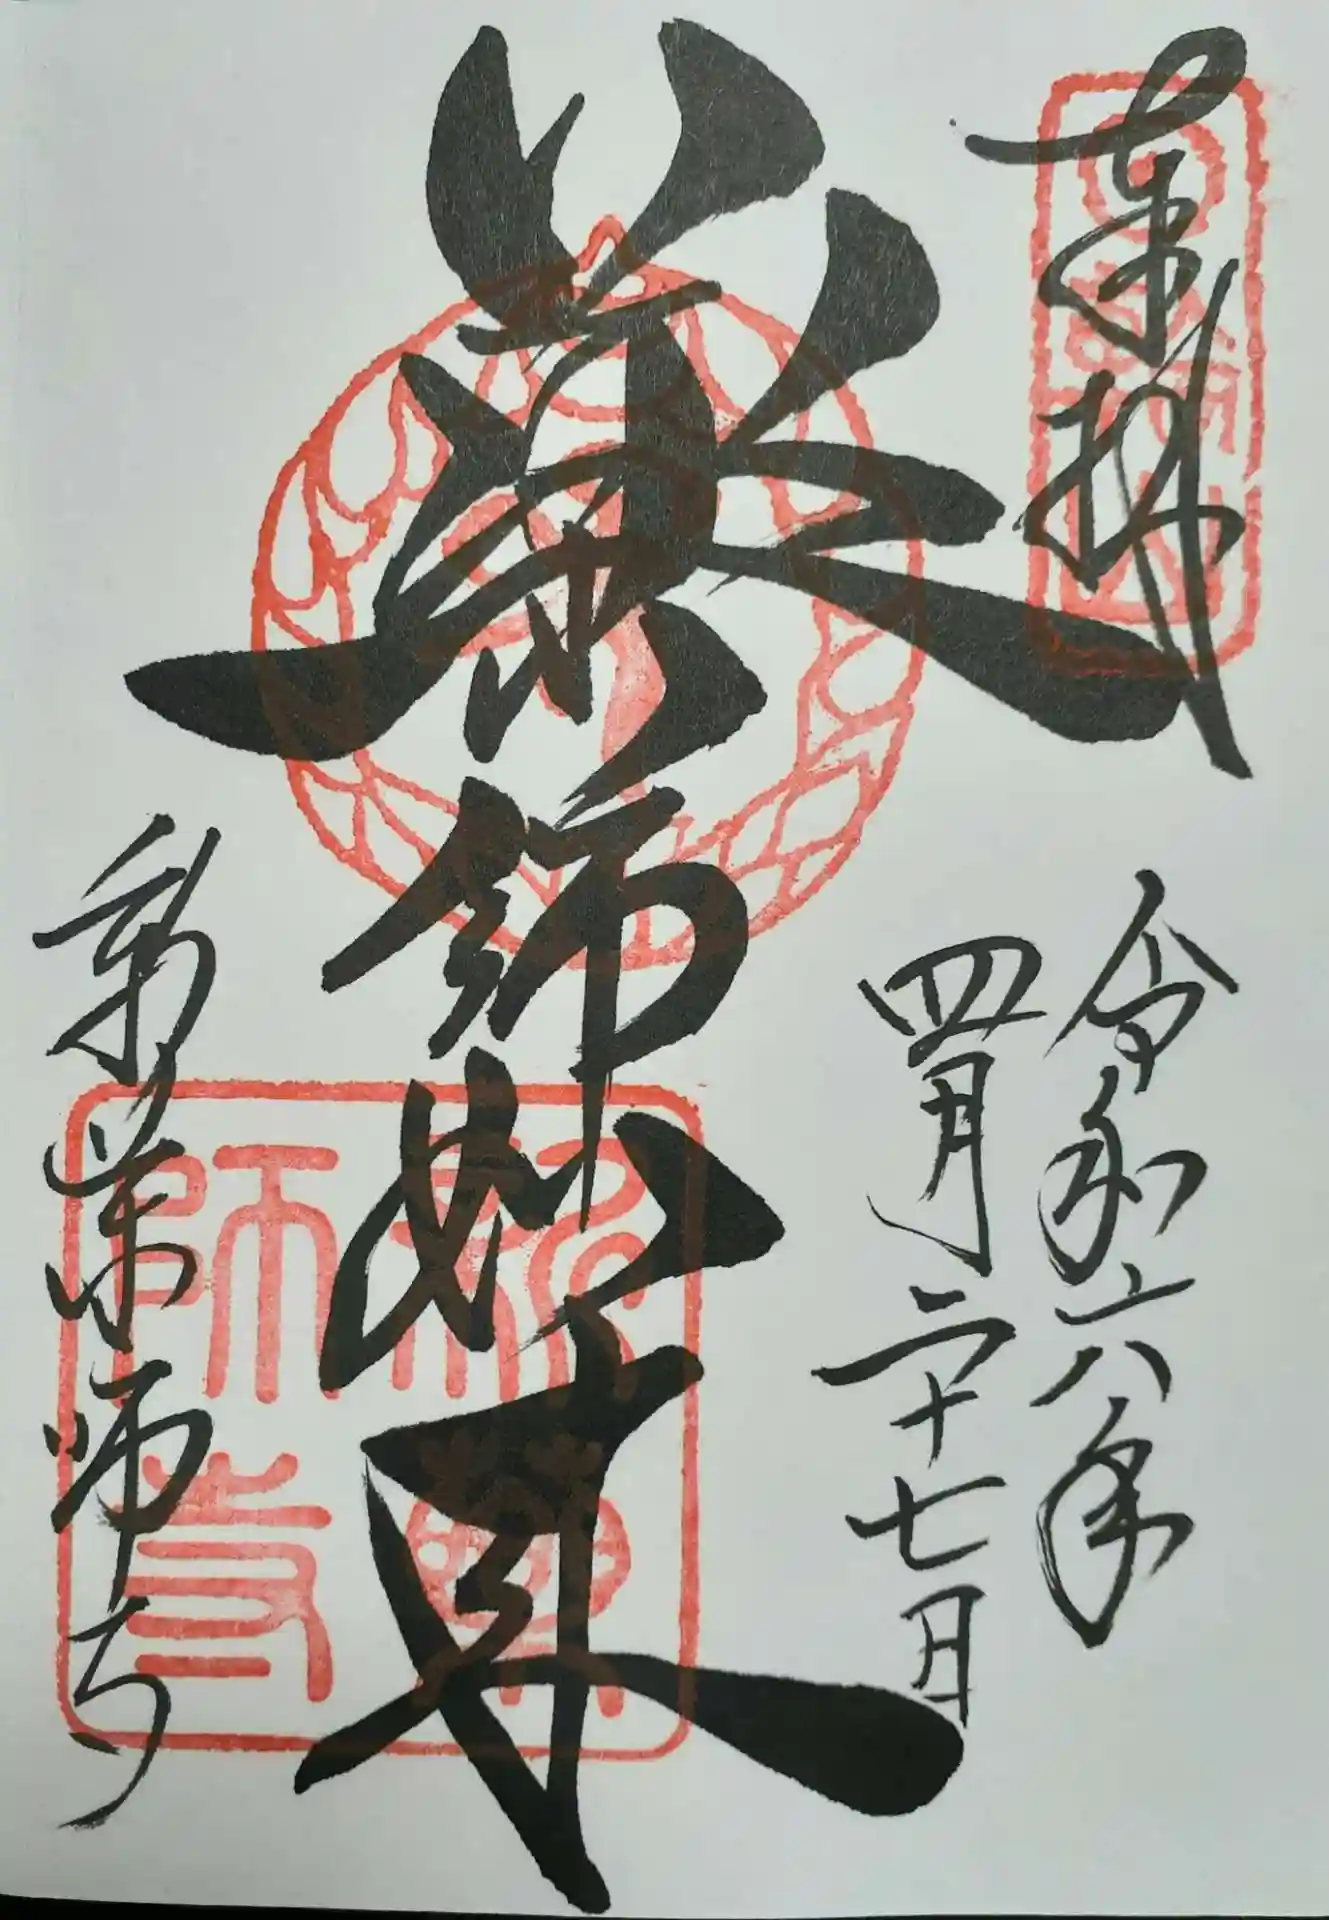 奉拝
令和六年
四月二十七日
薬師如来
新薬師寺